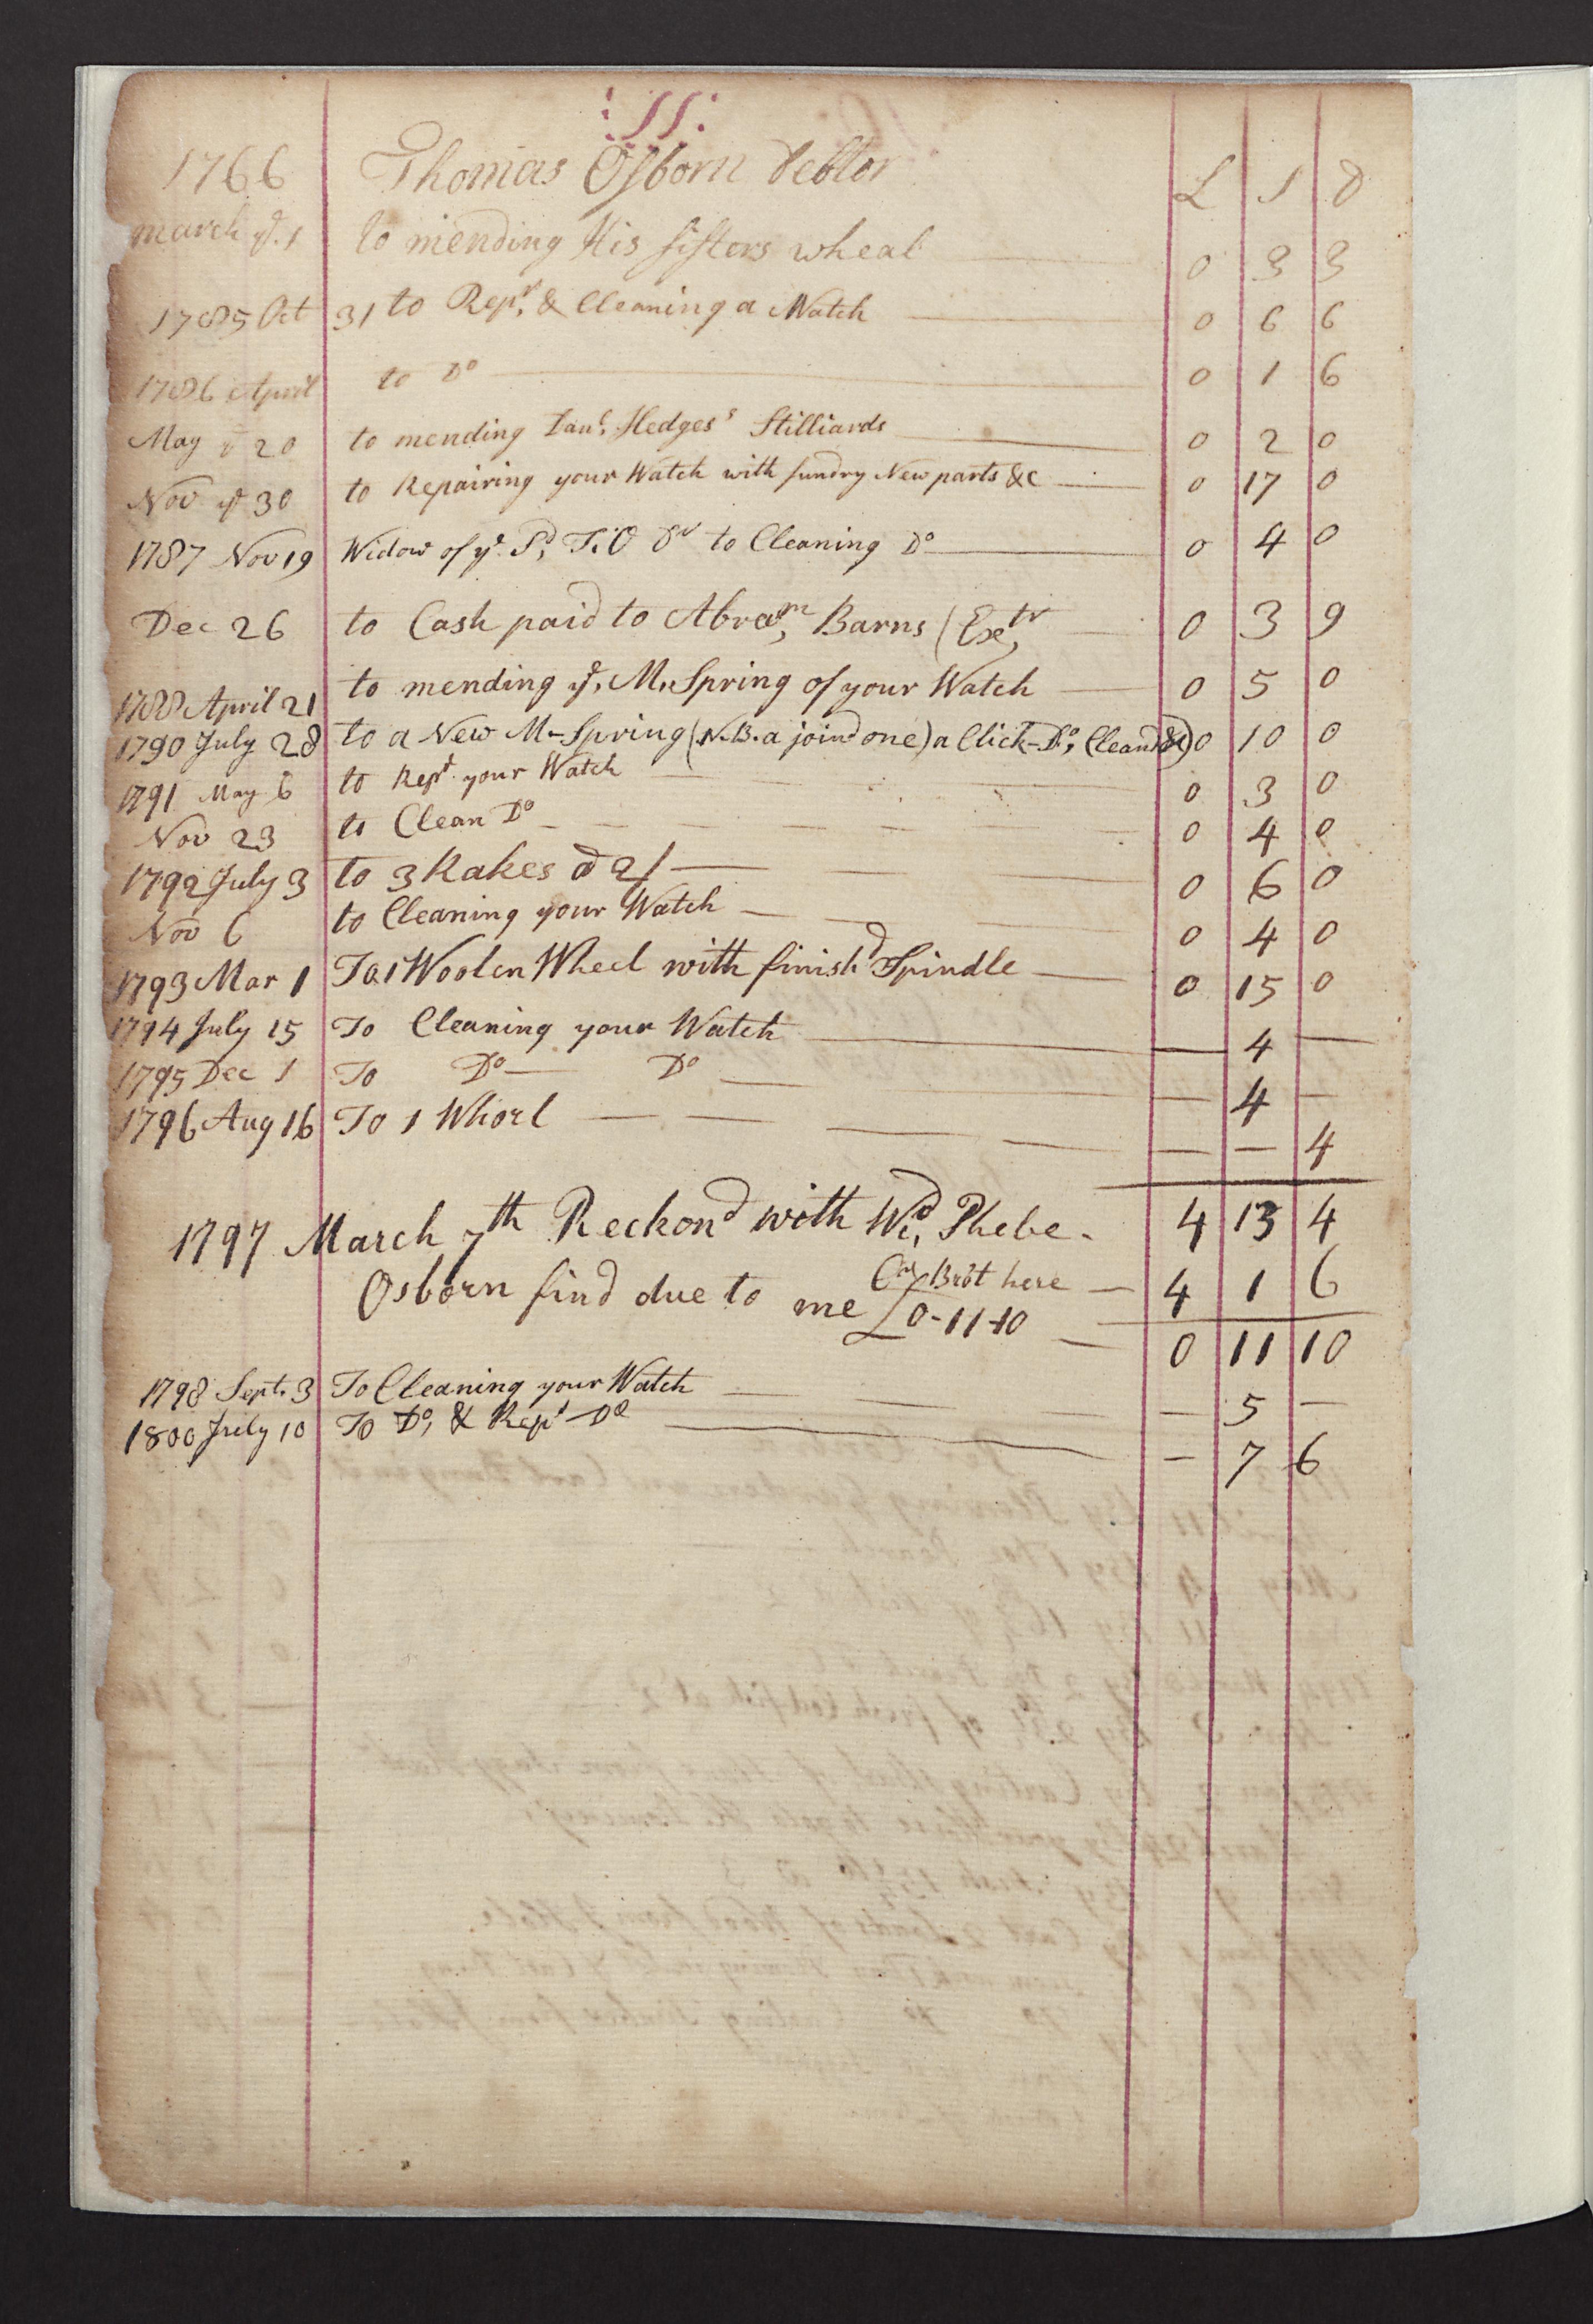 :11:
1766 Thomas Osborn Debtor L S D
march ye. 1 to mending His sisters wheal 0 3 3
1785 Oct 31 to Repr. & Cleaning a Watch 0 6 6
1786 April to Do 0 1 6
May ye 20 to mending Hedges's Stilliards 0 2 0
Nov ye 30 to Repairing your Watch with sundry New parts &c 0 17 0
1787 Nov 19 Widow of ye. Sd, T.O Dr to Cleaning Do 0 4 0
Dec 26 to Cash paid to Abram, Barns (Exetr, 0 3 9
1788 April 21 to mending ye, M.Spring of your Watch 0 5 0
1790 July 28 to a New M-Spring (N.B. a joind one) a Click-Do, Cleand &c) 0 10 0
1791 May 6 to Repr. your Watch 0 3 0
Nov 23 to Clean Do 0 4 0
1792 July 3 to 3 Rakes @ 2/ 0 6 0
Nov 6 to Cleaning your Watch 0 4 0
1793 Mar 1 To 1 Woolen Wheel with finishd Spindle 0 15 0
1794 July 15 To Cleaning your Watch — 4 —
1795 Dec 1 To Do Do — 4 —
1796 Aug 16 To 1 Whorl — — 4
1797 March 7th Reckond with Wid, Phebe 4 13 4
Osborn find due to me £0-11-10 Cr Brot here 4 1 6
0 11 10
1798 Sept. 3 To Cleaning your Watch — 5 —
1800 July 10 To Do, & Repr Do — 7 6